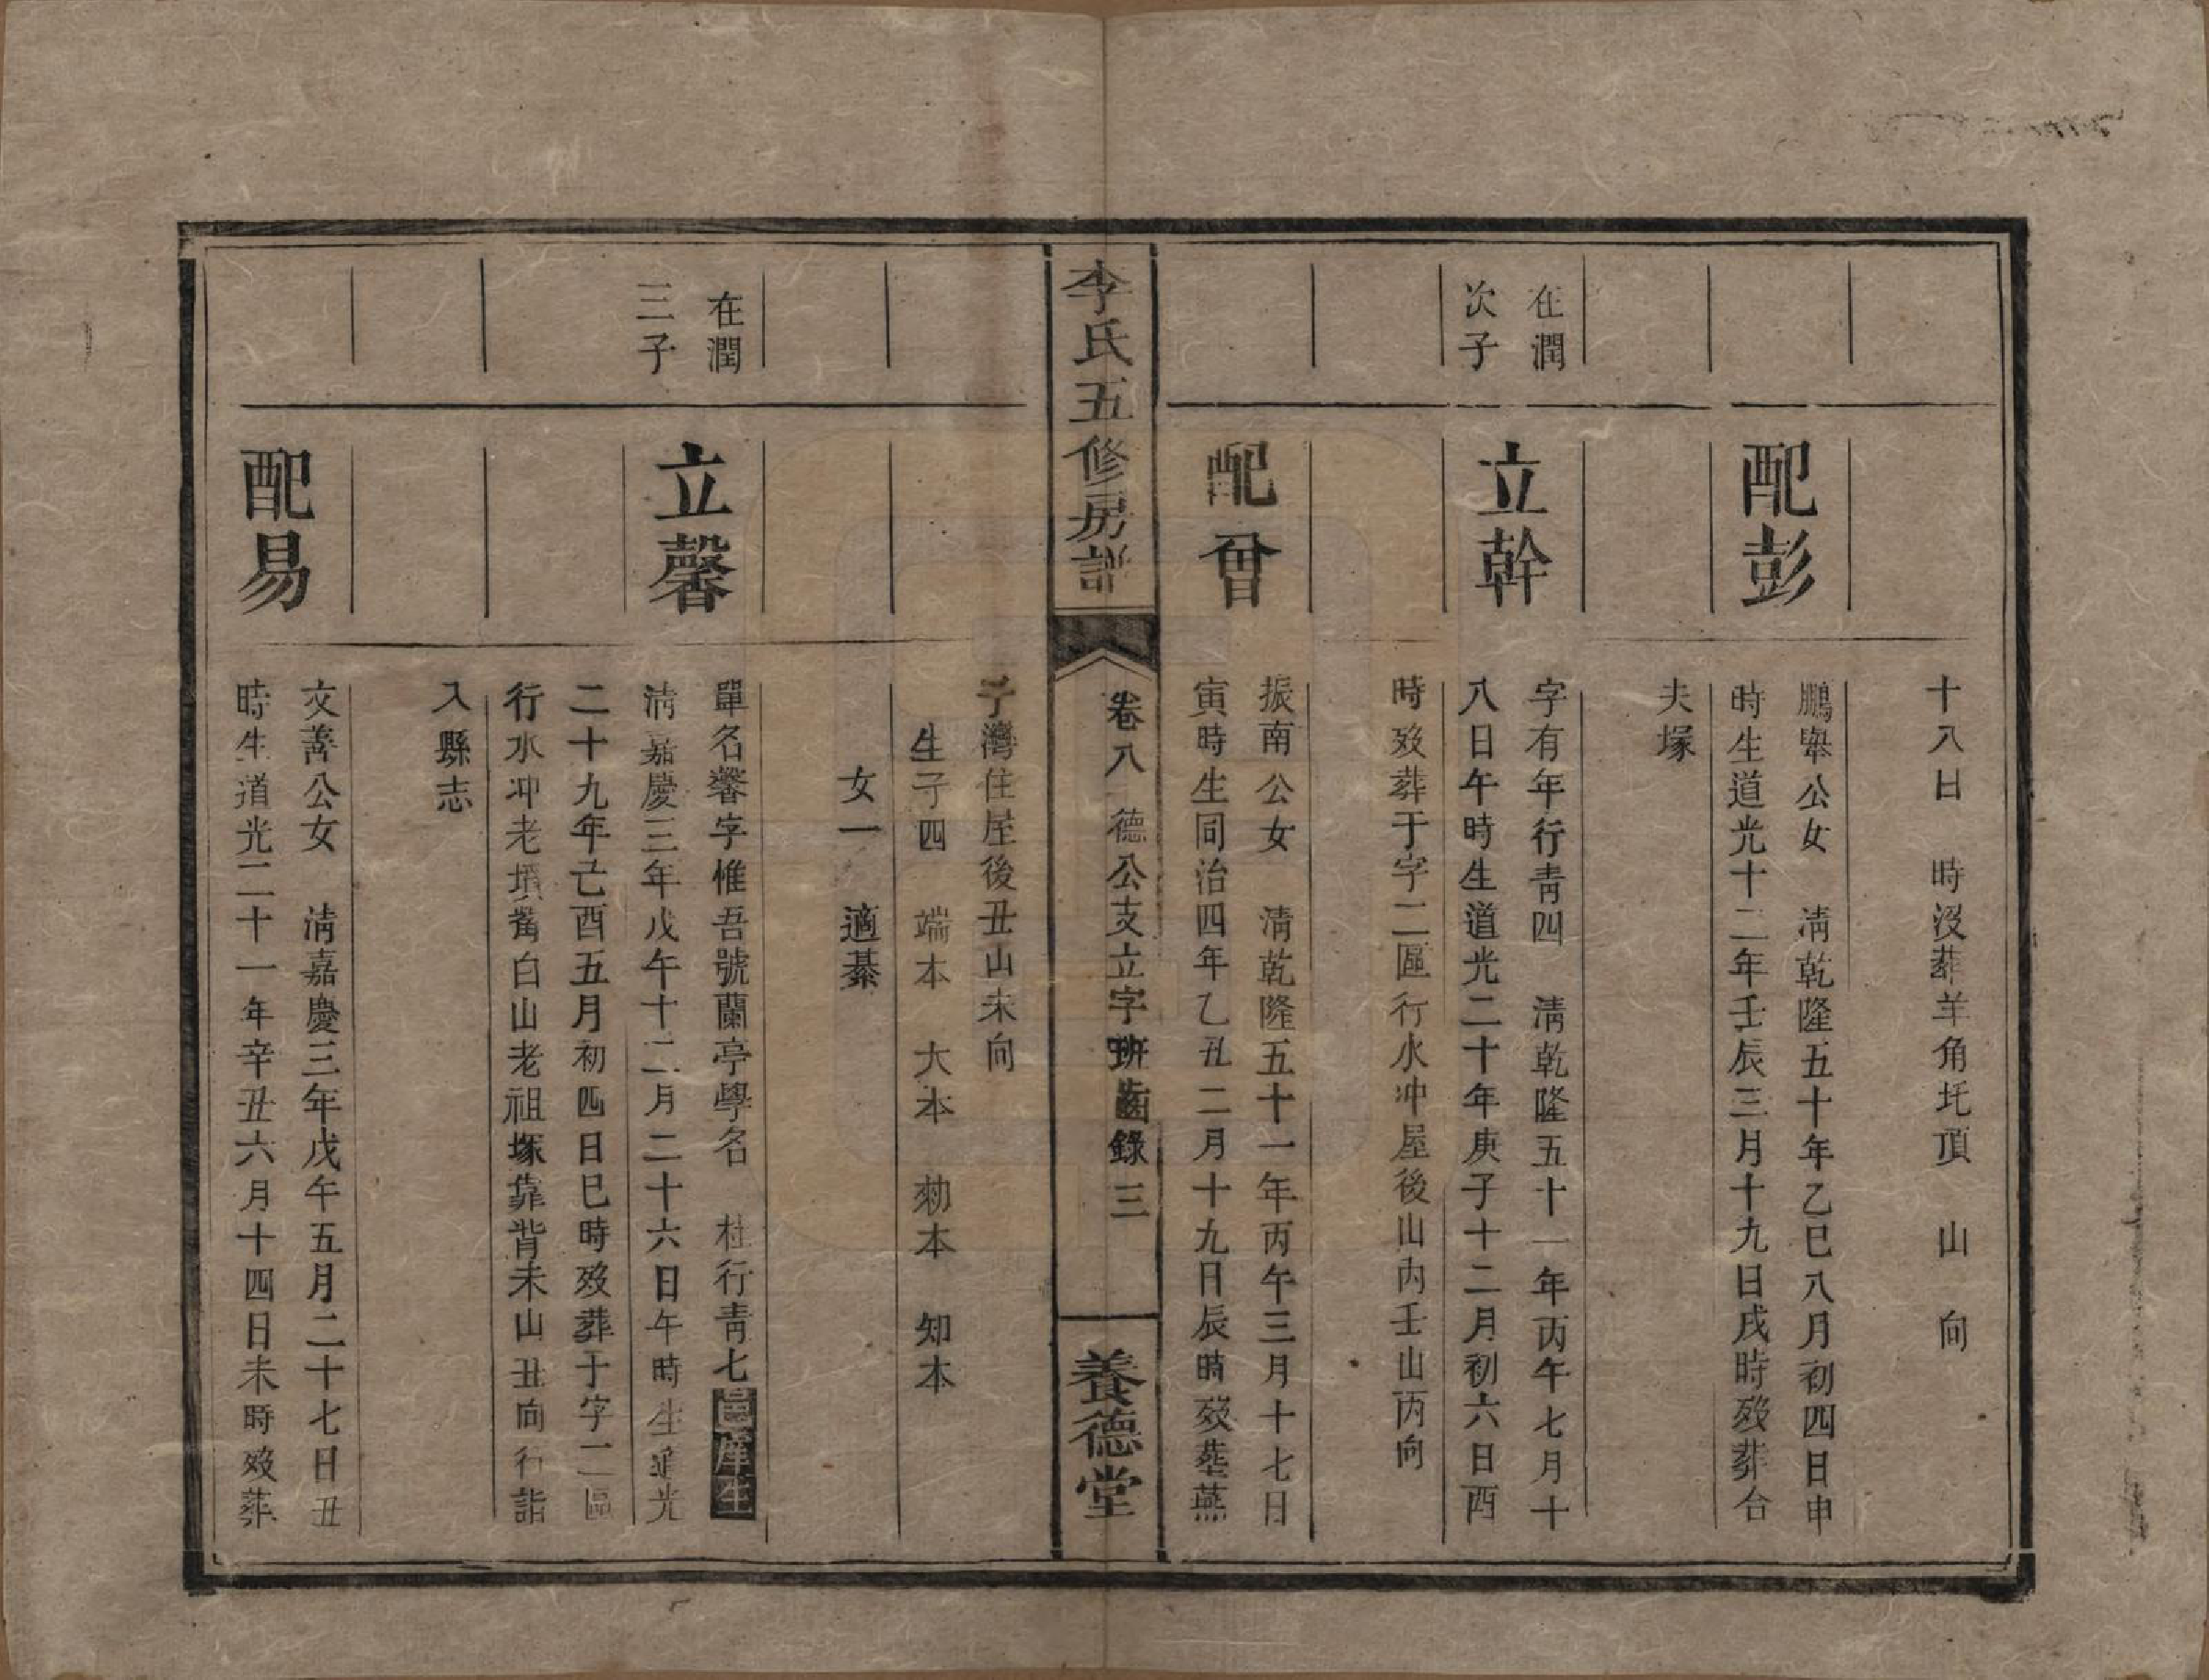 十八日　時沒葬羊角圫頂　山　向
配彭
鵬舉公女　淸乾隆五十年乙巳八月初四日申
時生道光十二年壬辰三月十九日戌時歿葬合
夫塚
在潤
次子
立幹
字有年行靑四　淸乾隆五十一年丙午七月十
八日午時生道光二十年庚子十二月初六日酉
時歿葬于字二區行水冲屋後山內壬山丙向
配曾
振南公女　淸乾隆五十一年丙午三月十七日
寅時生同治四年乙丑二月十九日辰時歿塟蕪
李氏五修房譜
卷八　德公支立字班齒錄　三
養德堂
子灣住屋後丑山未向
生子四　端本　大本　勑本　知本
女一　適綦
在潤
三子
立馨
單名馨字惟吾號蘭亭學名　杜行靑七邑庠生
淸嘉慶三年戊午十二月二十六日午時生道光
二十九年己酉五月初四日巳時歿葬于字二區
行水冲老墳觜白山老祖塚靠背未山丑向行詣
入縣志
配易
文善公女　淸嘉慶三年戊午五月二十七日丑
時生道光二十一年辛丑六月十四日未時歿葬